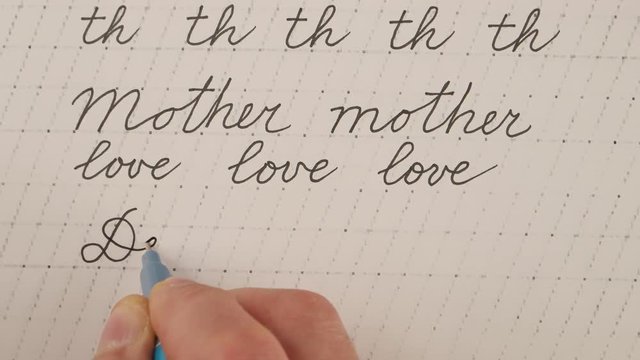 th th th th th
Mother mother
love love love
D